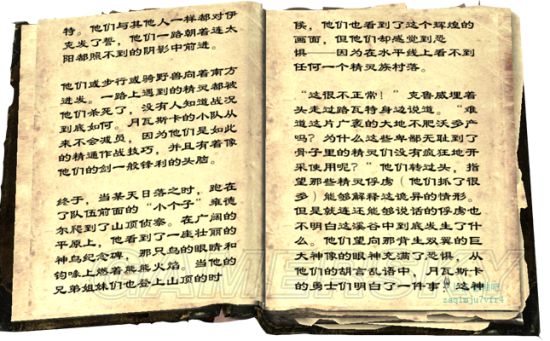 特。他们与其他人一样都对伊
克发了誓，他们一路朝着连太
阳都照不到的阴影中前进。
他们或步行或骑野兽向着南方
进发。一路上遇到的精灵都被
他们杀死了，没有人知道战况
到底如何。月瓦斯卡的小队从
来不会减员，因为他们是如此
的精通作战技巧，并且有着像
他们的剑一般锋利的头脑。
终于，当某天日落之时，跑在
了队伍前面的“小个子”雍德
尔爬到了山顶侦察。在广阔的
平原上，他看到了一座壮丽的
神鸟纪念碑，那只鸟的眼睛和
钩喙上燃着熊熊火焰。当他的
兄弟姐妹们也登上山顶的时
候，他们也看到了这个辉煌的
画面，但他们却感觉到恐
惧——因为在水平线上看不到
任何一个精灵族村落。
“这很不正常！”克鲁威埋着
头走过路瓦特身边说道。“难
道这片广袤的大地不肥沃多产
吗？为什么这些卑鄙无耻到了
骨子里的精灵们没有疯狂地开
采使用呢？”他们转过头，指
望那些精灵俘虏（他们抓了很
多）能够解释这诡异的情形。
但是就连还能够说话的俘虏也
不明白这溪谷中到底发生了什
么。他们望向那背生双翼的巨
大神像的眼神充满了恐惧，从
他们的胡言乱语中，月瓦斯卡
的勇士们明白了一件事，这神
GAMERSKY
zaqimju7vfr4